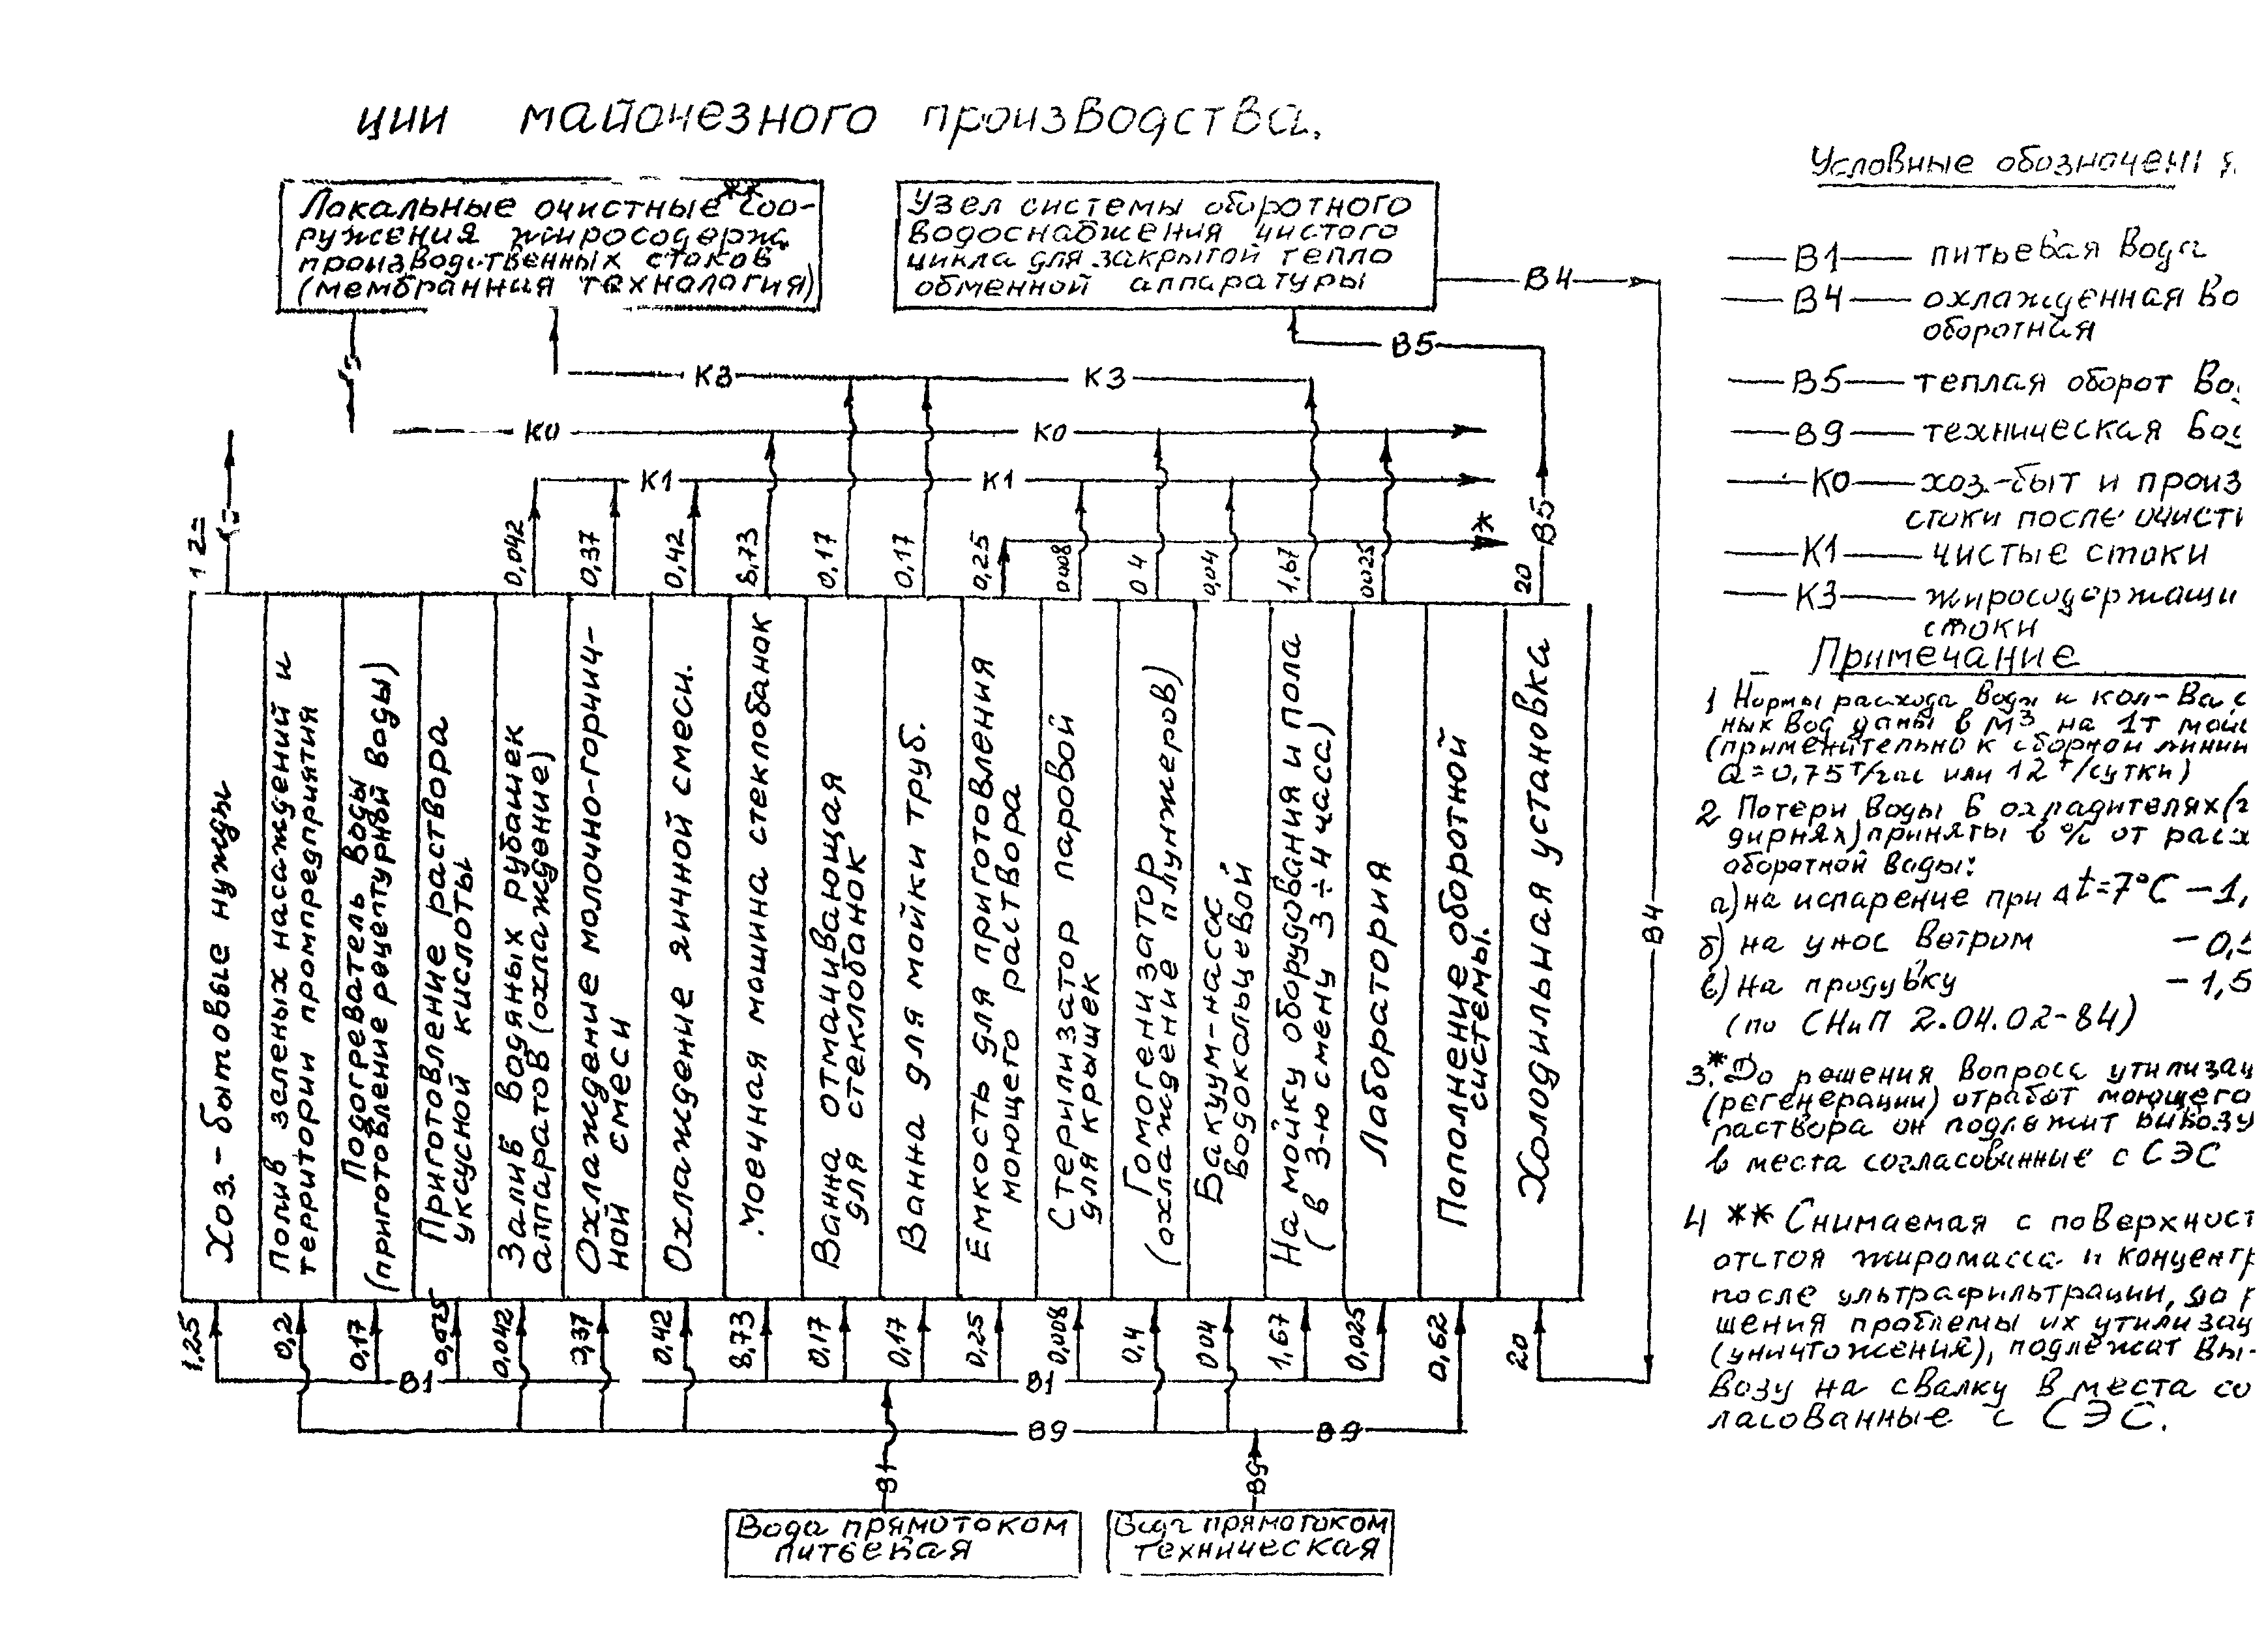 ции майонезного производства.
Локальные очистные** соо-
ружения жиросодерж.
производственных стоков
(мембранная технология)
Узел системы оборотного
водоснабжения чистого
цикла для закрытой тепло
обменной аппаратуры
В4
В5
К3 К3
К0 К0
К1 К1
*
В5
0,042
0,37
0,42
8,73
0,17
0,17
0,25
0008
0 4
0,04
1,67
0025
20
Хоз.-бытовые нужды
Полив зеленых насаждений и
территории промпредприятия
Подогреватель воды
(приготовление рецептурной воды)
Приготовление раствора
уксусной кислоты
Залив водяных рубашек
аппаратов (охлаждение)
Охлаждение молочно-горчич-
ной смеси
Охлаждение яичной смеси.
Моечная машина стеклобанок
Ванна отмачивающая
для стеклобанок
Ванна для мойки труб.
Емкость для приготовления
моющего раствора
Стерилизатор паровой
для крышек
Гомогенизатор
(охлаждение плунжеров)
Вакуум-насос
водокольцевой
На мойку оборудования и пола
(в 3-ю смену 3÷4 часа)
Лаборатория
Пополнение оборотной
системы.
Холодильная установка
В4
1,25
0,2
0,17
0,025
0,042
0,37
0,42
8,73
0,17
0,17
0,25
0,008
0,4
0 04
1,67
0,025
0,62
20
В1 В1
В9 В9
В1
В9
Вода прямотоком
питьевая
Вода прямотоком
техническая
Условные обозначения
В1 питьевая вода
В4 охлажденная во
оборотная
В5 теплая оборот во
В9 техническая вод
К0 хоз.-быт и произ
стоки после очист
К1 чистые стоки
К3 жиросодержащи
стоки
Примечание
1 Нормы расхода воды и кол-ва с
ных вод даны в м³ на 1т май
(применительно к сборной линии
Q=0,75т/час или 12т/сутки)
2 Потери воды в охладителях(г
дирнях) приняты в % от расх
оборотной воды:
а) на испарение при Δt=7°С – 1,
б) на унос ветром – 0,5
в) на продувку – 1,5
(по СНиП 2.04.02-84)
3.* До решения вопроса утилизац
(регенерации) отработ моющего
раствора он подлежит вывозу
в места согласованные с СЭС
4 ** Снимаемая с поверхност
отстоя жиромасса и концентр
после ультрафильтрации, до р
шения проблемы их утилизац
(уничтожения), подлежат вы-
возу на свалку в места со
ласованные с СЭС.